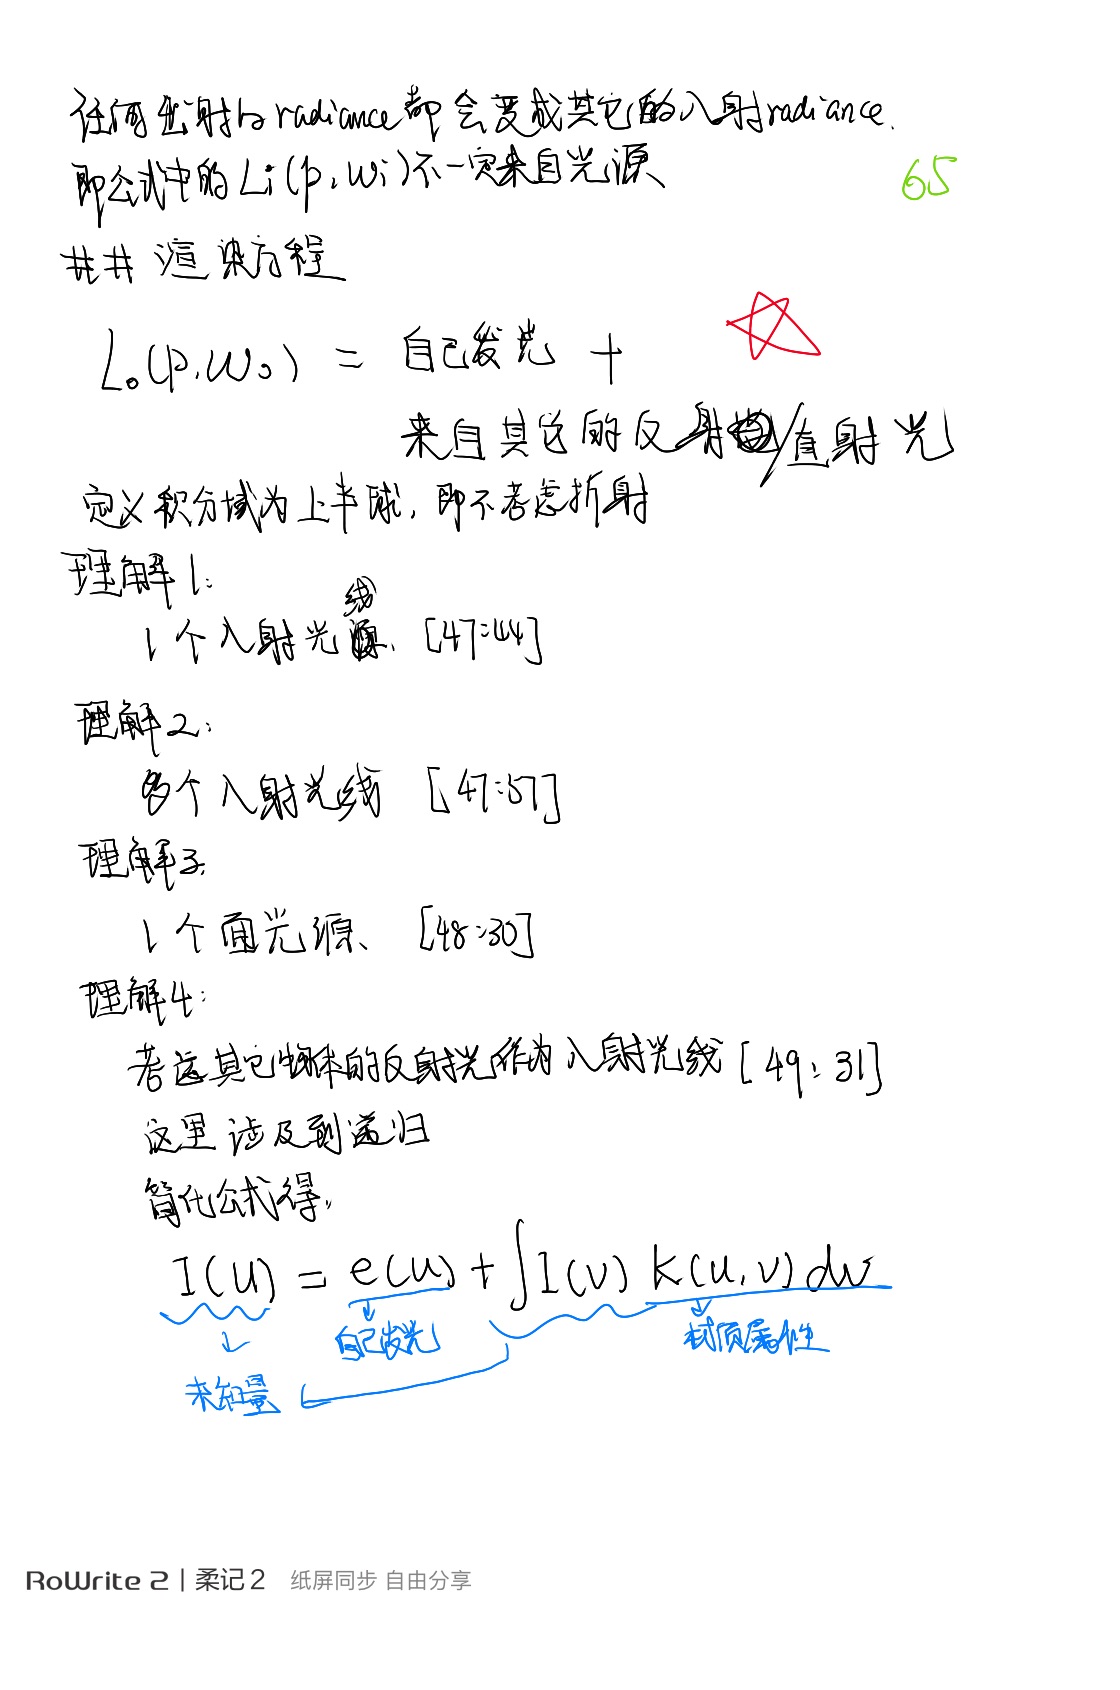 任何出射的radiance都会变成其它的入射radiance.
即公式中的Li(p,wi)不一定来自光源、
65
## 渲染方程
Lo(p,wo) = 自己发光 +
来自其它的反射/直射光
定义积分域为上半球,即不考虑折射
理解1:
1个入射光线、[47:44]
理解2:
多个入射光线 [47:57]
理解3:
1个面光源、[48:30]
理解4:
考虑其它物体的反射光作为入射光线[49:31]
这里涉及到递归
简化公式得:
I(u) = e(u) + ∫I(v) K(u,v) dv
自己发光
材质属性
未知量
RoWrite 2 | 柔记2 纸屏同步 自由分享